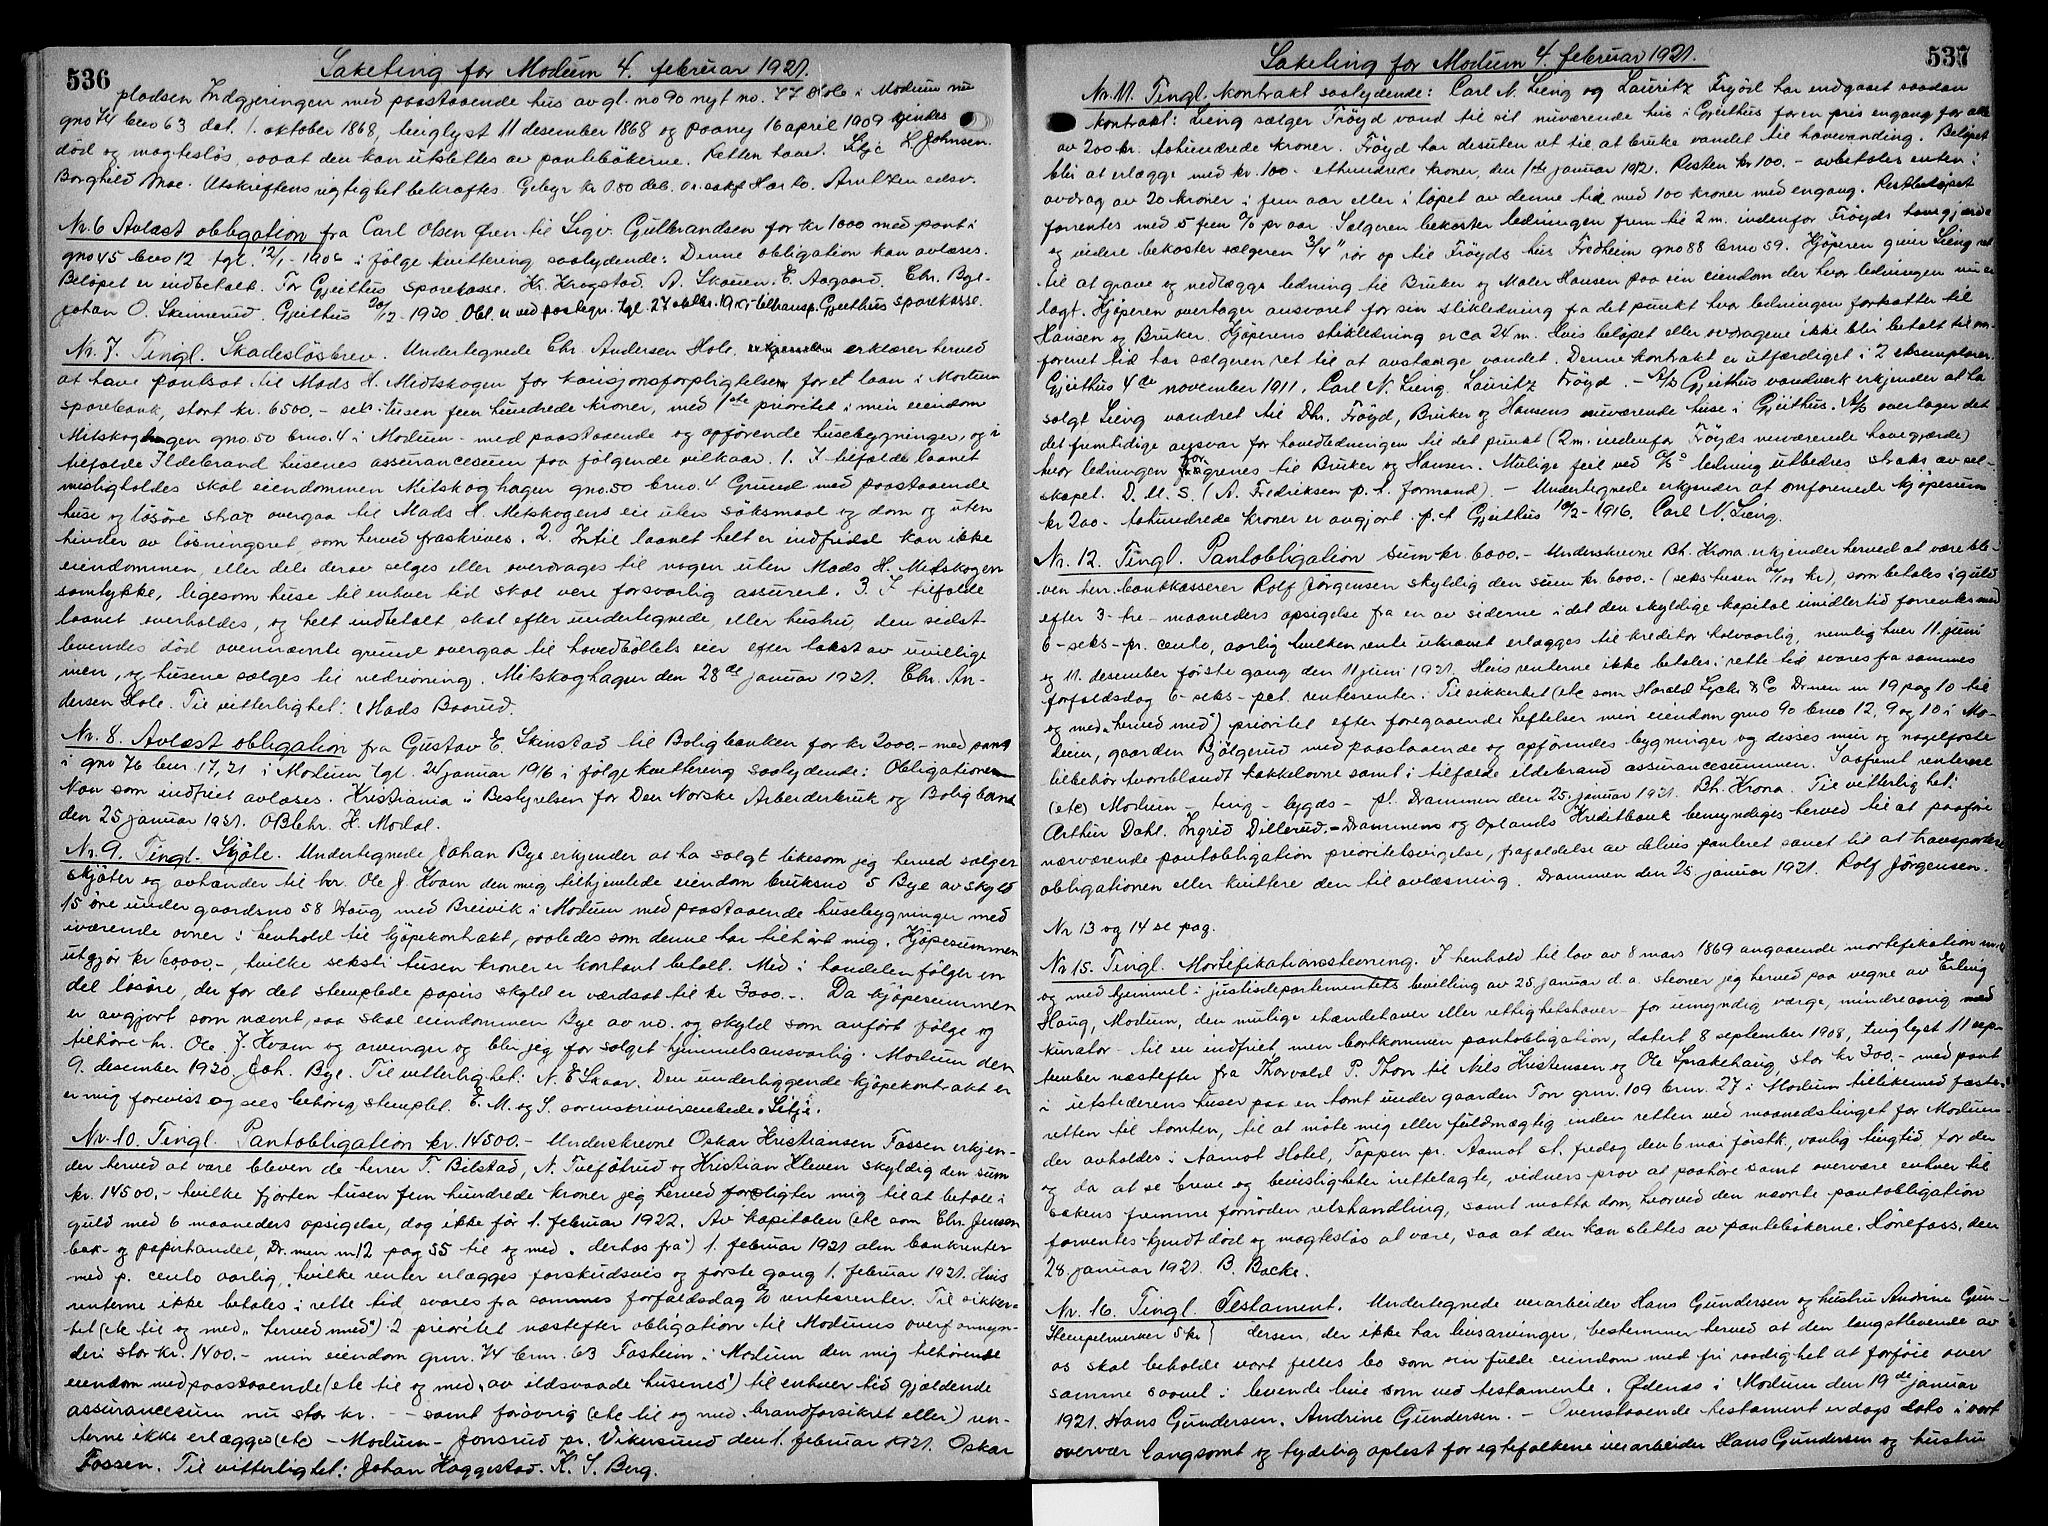 536
Saketing for Modum 4. februar 1921.
pladsen Indgjeringen med paastaaende hus av gl. no 90 nyt no. 77 Hole i Modum nu
gno 74 bno 63 dat. 1. oktober 1868, tinglyst 11 desember 1868 og paany 16 april 1909 kjendes
død og magtesløs, saaat den kan utslettes av pantebøkerne. Retten hævet. Lilje L. Johnsen.
Borghild Moe. Utskriftens rigtighet bekræftes. Gebyr kr 0.80 Arntzen edsv.
Nr. 6 Avlæst obligation fra Carl Olsen Øren til Sigv. Gulbrandsen for kr 1000 med pant i
gno 45 bno 12 tgl. 12/1-1906 i følge kvittering saalydende: Denne obligation kan avlæses.
Beløpet er indbetalt. For Gjeithus Sparekasse. Kr. Krogstad. A. Skauen. E. Aagaard. Chr. Bye.
Johan O. Skinnerud. Gjeithus 20/2-1920. Obl. er ved paategn. tgl. 27 oktbr. 19 transp. Gjeithus Sparekasse.
Nr. 7. Tingl. Skadesløsbrev. Undertegnede Chr. Andersen Hole, erklærer herved
at have pantsat til Mads H. Midtskogen for kausjonsforpligtelsen for et laan i Modum
Sparebank, stort kr. 6500.- seks tusen fem hundrede kroner, med 1ste prioritet i min eiendom
Mitskoghagen gno. 50 bno. 4 i Modum - med paastaaende og opførende husebygninger, og i
tilfælde Ildebrand husenes assurancesum paa følgende vilkaar. 1. I tilfælde laanet
misligholdes skal eiendommen Mitskoghagen gno. 50 bno. 4 Grund med paastaaende
huse og løsøre strax overgaa til Mads H. Mitskogens eie uten søksmaal og dom og uten
hinder av løsningsret, som herved fraskrives. 2. Intil laanet helt er indfridd kan ikke
eiendommen, eller dele derav selges eller overdrages til nogen uten Mads H. Mitskogen
samtykke, ligesom huse til enhver tid skal være forsvarlig assurert. 3. I tilfælde
laanet overholdes, og helt indbetalt skal efter undertegnede, eller hustru, den sidst
levendes død ovennævnte grund overgaa til hovedbøllets eier efter takst av uvillige
men, og husene sælges til nedrivning. Mitskoghagen den 28de januar 1921. Chr. An-
dersen Hole. Til vitterlighet: Mads Baarud.
Nr. 8. Avlæst obligation fra Gustav E. Skinstad til Boligbanken for kr 2000.- med pant
i gno 76 bnr. 17, 21 i Modum tgl. 24 januar 1916 i følge kvittering saalydende: Obligationen
kan som indfriet avlæses. Kristiania i Bestyrelsen for Den Norske Arbeiderbruk og Boligbank
den 25 januar 1921. O Blehr. H. Modal.
Nr. 9. Tingl. Skjøte. Undertegnede Johan Bye erkjender at ha solgt likesom jeg herved sælger
skjøter og avhænder til hr. Ole J. Hvam den mig tilhjemlede eiendom bruksno 5 Bye av skyld
15 øre under gaardsno 58 Haug med Breivik i Modum med paastaaende husebygninger med
iværende ovner i henhold til kjøpekontrakt, saaledes som denne har tilhørt mig. Kjøpesummen
utgjør kr 60,000.-, hvilke seksti tusen kroner er kontant betalt. Med i handelen følger en
del løsøre, der for det stemplede papirs skyld er værdsat til kr 3000.-. Da kjøpesummen
er avgjort som nævnt, saa skal eiendommen Bye av no. og skyld som anført følge og
tilhøre hr. Ole J. Hvam og arvinger og blir jeg for salget hjemmelsansvarlig. Modum den
9. desember 1920. Joh. Bye. Til vitterlighet: N. E Skaar. Den underliggende kjøpekontrakt er
er mig forevist og sees behørig stemplet. E. M. og S. sorenskriverembede. Lilje.
Nr. 10. Tingl. Pantobligation kr. 14500.- Underskrevne Oskar Kristiansen Fossen erkjen-
der herved at være bleven de herrer T. Bilstad, N. Tveføtrud og Kristian Kleven skyldig den sum
kr. 14500.- hvilke fjorten tusen fem hundrede kroner jeg herved forpligter mig til at betale i
guld med 6 maaneders opsigelse, dog ikke før 1. februar 1922. Av kapitalen (etc som Chr. Jensen
bok- og papirhandel, Dr.men nr 12 pag 55 til og med "derhos fra") 1. februar 1921 alm bankrenter
med p. cento aarlig, hvilke renter erlægges forskudsvis og første gang 1. februar 1921. Hvis
renterne ikke betales i rette tid svares fra sammes forfaldsdag % rentesrenter. Til sikker-
het (etc til og med "herved med") 2 prioritet næstefter obligation til Modums overformyn-
deri stor kr. 1400.- min eiendom gnr. 74 bnr. 63 Fosheim i Modum den mig tilhørende
eiendom med paastaaende (etc til og med "av ildsvaade husenes") til enhver tid gjældende
assurancesum nu stor kr. - - samt forøvrig (etc til og med "brandforsikret eller") ren-
terne ikke erlægges (etc) - Modum - Jonsrud pr. Vikersund den 1. februar 1921. Oskar
Fossen. Til vitterlighet: Johan Haggestad. K. S. Berg.
537
Saketing for Modum 4. februar 1921.
Nr. 11. Tingl. kontrakt saalydende: Carl N. Lieng og Lauritz Frøyd har indgaaet saadan
kontrakt: Lieng sælger Frøyd vand til sit nuværende hus i Gjeithus for en pris engang for alle
av 200 kr. tohundrede kroner. Frøyd har desuten ret til at bruke vandet til havevanding. Beløpet
blir at erlægge med kr. 100.- ethundrede kroner, den 1ste januar 1912. Resten kr 100.- avbetales enten i
avdrag av 20 kroner i fem aar eller i løpet av denne tid med 100 kroner med engang. Restbeløpet
forrentes med 5 fem % pr aar. Sælgeren bekoster ledningen frem til 2 m. indenfor Frøyds havegjærde
og videre bekoster sælgeren 3/4" rør op til Frøyds hus Fredheim gno 88 bno 59. Kjøperen giver Lieng ret
til at grave og nedlægge ledning til Bruker og Maler Hansen paa sin eiendom der hvor ledningen nu er
lagt. Kjøperen overtager ansvaret for sin stikledning fra det punkt hvor ledningen fortsætter til
Hansen og Bruker. Kjøperens stikledning er ca 24 m. Hvis beløpet eller avdragene ikke blir betalt til om-
forenet tid har sælgeren ret til at avstænge vandet. Denne kontrakt er utfærdiget i 2 eksemplarer.
Gjeithus 4de november 1911. Carl N. Lieng. Lauritz Frøyd. - A/S Gjeithus vandverk erkjender at ha
solgt Lieng vandret til Dhr. Frøyd, Bruker og Hansens nuværende huse i Gjeithus. A/S overtager det
det fremtidige ansvar for hovedledningen til det punkt (2 m. indenfor Frøyds nuværende havegjærde)
hvor ledningen forgrenes til Bruker og Hansen. Mulige feil ved A/S ledning utbedres straks av sel-
skapet. D. U. S. (A. Fredriksen p. t. formand). - Undertegnede erkjender at omforenede kjøpesum
kr 200.- tohundrede kroner er avgjort. p. t. Gjeithus 10/2-1916. Carl N. Lieng.
Nr. 12. Tingl. Pantobligation sum kr. 6000.- Underskrevne Bh. Krona erkjender herved at være ble-
ven herr bankkasserer Rolf Jørgensen skyldig den sum kr 6000.- (seks tusen 00/100 kr), som betales i guld
efter 3- tre- maaneders opsigelse fra en av siderne i det den skyldige kapital imidlertid forrentes med
6- seks- pr. cento, aarlig hvilken rente ukrævet erlægges til kreditor halvaarlig, nemlig hver 11. juni
og 11. desember første gang den 11 juni 1921. Hvis renterne ikke betales i rette tid svares fra sammes
forfaldsdag 6- seks- pct. rentesrenter. Til sikkerhet (etc som Harald Lyche & Co Drmen nr 19 pag 10 til
og med "herved med") prioritet efter foregaaende heftelser min eiendom gno 90 bno 12, 9 og 10 i Mo-
dum, gaarden Bjølgerud med paastaaende og opførendes bygninger og desses mur og nagelfaste
tilbehør hvoriblandt kakkelovne samt i tilfælde ildebrand assurancesummen. Saafremt renterne
(etc) Modum - ting - bygds - pt. Drammen den 25. januar 1921. Bh. Krona. Til vitterlighet:
Arthur Dahl. Ingrid Dillerud. - Drammens og Oplands Kreditbank bemyndiges herved til at paaføre
nærværende pantobligation prioritetsvigelse, frafaldelse av delvis panteret samt til at transportere
obligationen eller kvittere den til avlæsning. Drammen den 25. januar 1921. Rolf Jørgensen.
Nr 13 og 14 se pag.
Nr 15. Tingl. Mortifikationsstevning. I henhold til lov av 8 mars 1869 angaaende mortifikation m.v.
og med hjemmel i justisdepartementets bevilling av 25 januar d. a. stevner jeg herved paa vegne av Erling
Haug, Modum, den mulige ihændehaver eller rettighetshaver - for umyndig værge, mindreaarig med
kurator - til en indfriet men bortkommen pantobligation, datert 8 september 1908, tinglyst 11 sep-
tember næstefter fra Thorvald P. Thon til Nils Kristensen og Ole Sprakehaug, stor kr 300,- med pant
i utstederens huser paa en tomt under gaarden Ton gnr. 109 bnr. 27 i Modum tillikemed fæste-
retten til tomten, til at møte mig eller fuldmægtig inden retten ved maanedstinget for Modum
der avholdes i Aamot Hotel, Tappen pr. Aamot st. fredag den 6 mai førstk, vanlig tingtid, for der
og da at se breve og bevisligheter irettelagte, vidners prov at paahøre samt overvære enhver til
sakens fremme fornøden retshandling, samt motta dom, hvorved den nævnte pantobligation
forventes kjendt død og magtesløs at være, saa at den kan slettes av pantebøkerne. Hønefoss, den
28. januar 1921. B. Backe.
Nr. 16. Tingl. Testament. Undertegnede verarbeider Hans Gundersen og hustru Andrine Gun-
Stempelmerker 5 kr } dersen, der ikke har livsarvinger, bestemmer herved at den længstlevende av
os skal beholde vort felles bo som sin fulde eiendom med fri raadighet at forføie over
samme saavel i levende live som ved testamente. Ødenæs i Modum den 19de januar
1921. Hans Gundersen. Andrine Gundersen. - Ovenstaaende testament er dags dato i vort
overvær langsomt og tydelig oplæst for egtefolkene verarbeider Hans Gundersen og hustru